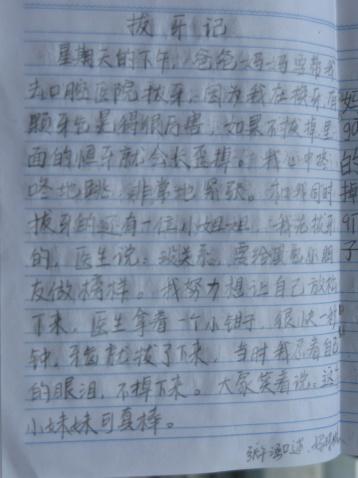 拔牙记
星期天的下午，爸爸妈妈要带我
去口腔医院拔牙。因为我在换牙，有
颗牙包是得很厉害，如果不拔掉里
面的恒牙就会长歪掉。我心中咚
咚地跳，非常地紧张。和我同时
拔牙的还有一位小姐姐，我先拔牙
的，医生说：没关系，要给里面小朋
友做榜样。我努力想让自己放松
下来，医生拿着一个小钳子，很快一分
钟，牙齿就拔了下来，当时我忍着自己
的眼泪，不掉下来。大家笑着说：这
小妹妹可真棒。